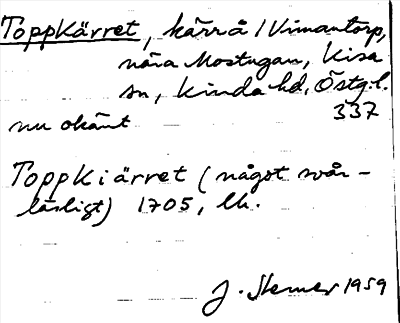 Toppkärret, kärr å Vimantorp,
nära Mostugan, Kisa
sn, Kinda hd, Östg.l.
337
nu okänt
Toppkiärret (något svår-
läsligt) 1705, lk.
J. Sterner 1959